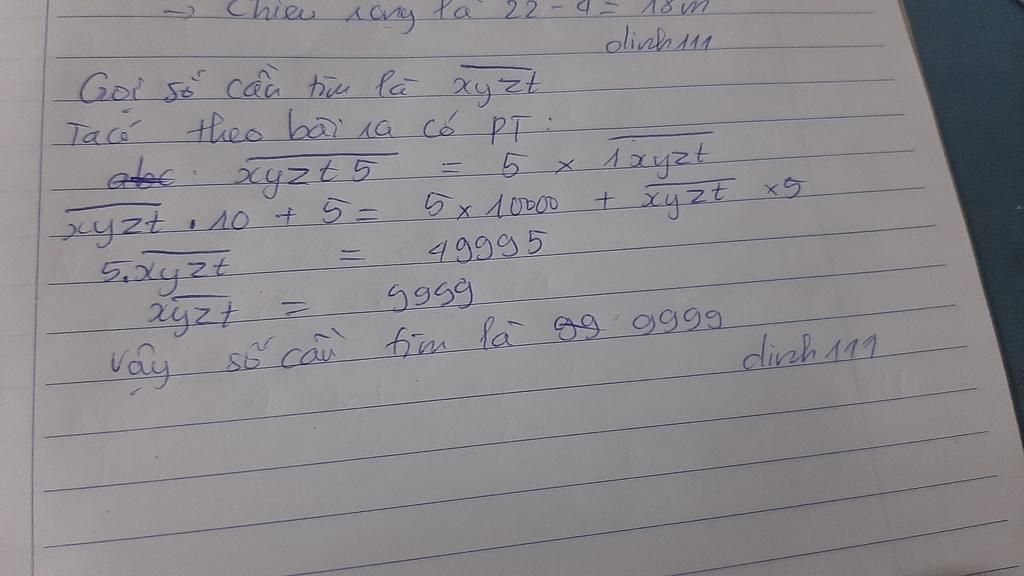 → Chiều rộng là 22 - 4 = 18m
dinh111
Gọi số cần tìm là xyzt
Ta có theo bài ra có PT:
abc. xyzt5 = 5 × 1xyzt
xyzt . 10 + 5 = 5 × 10000 + xyzt × 5
5.xyzt = 49995
xyzt = 9999
Vậy số cần tìm là 99 9999
dinh111